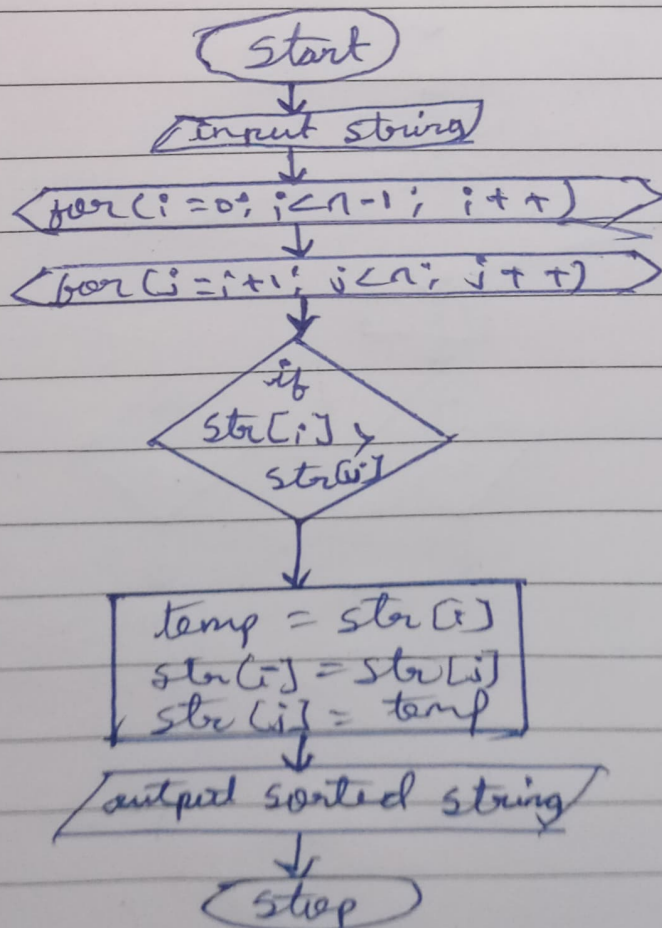 Start
input string
for(i=0; i<n-1; i++)
for(j=i+1; j<n; j++)
if
str[i] >
str[j]
temp = str[i]
str[i] = str[j]
str[j] = temp
output sorted string
stop